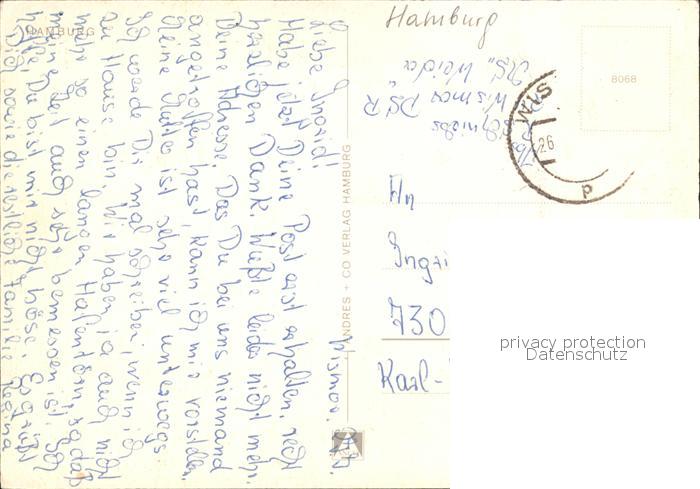 HAMBURG
Wismar, d.
Liebe Ingrid!
Habe jetzt Deine Post erst erhalten, recht
herzlichen Dank. Wußte leider nicht mehr
Deine Adresse. Das Du bei uns niemand
angetroffen hast, kann ich mir vorstellen.
Meine Mutter ist sehr viel unterwegs
Ich werde Dir mal schreiben, wenn ich
zu Hause bin. Wir haben ja auch nicht
mehr so einen langen Hafentörn, so daß
meine Zeit auch sehr bemessen ist. Ich
hoffe, Du bist mir nicht böse. Es grüßt
Dich sowie die restliche Familie Regina
ANDRES + CO VERLAG HAMBURG
Hamburg
Wismar DSR
MS "Weida"
8068
STAM
26
P
An
Ingri
730
Karl-
privacy protection
Datenschutz